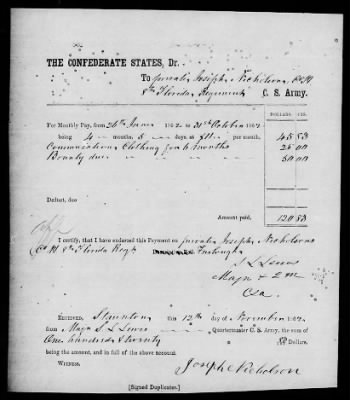 THE CONFEDERATE STATES, Dr.
To private Joseph Nicholson, Co H
8th Florida Regiment C. S. Army.
DOLLARS. CTS.
For Monthly Pay, from 26th June 1862 to 31st October 1862
being 4 months, 5 days at $11 per month, 45 83
Commutation Clothing for 6 months 25 00
Bounty due 50 00
Defect, due
Amount paid, 120 83
I certify, that I have endorsed this Payment on private Joseph Nicholsons
Co H 8th Florida Regt Furlough
S L Lewis
Majr & QM
CSA.
RECEIVED, Staunton this 12th day of November 1862
from Major S L Lewis Quartermaster C. S. Army, the sum of
One hundred & twenty 83 Dollars,
being the amount, and in full of the above account.
WITNESS,
Joseph Nicholson
[Signed Duplicates.]